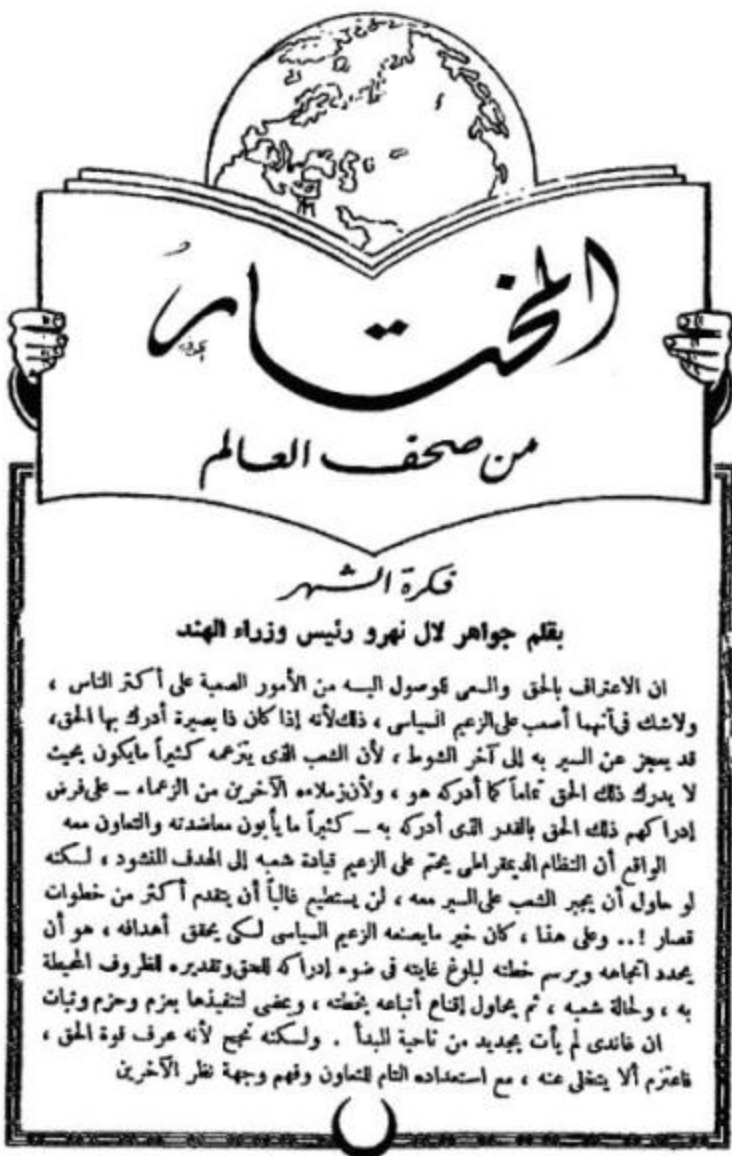 المختار
من صحف العالم
فكرة الشهر
بقلم جواهر لال نهرو رئيس وزراء الهند
ان الاعتراف بالحق والسعى للوصول اليه من الأمور الصعبة على أكثر الناس ،
ولاشك فى أنهما أصعب على الزعيم السياسى ، ذلك لأنه إذا كان ذا بصيرة أدرك بها الحق ،
قد يعجز عن السير به إلى آخر الشوط ، لأن الشعب الذى يتزعمه كثيراً مايكون بحيث
لا يدرك ذلك الحق تماماً كما أدركه هو ، ولأن زملاءه الآخرين من الزعماء – على فرض
إدراكهم ذلك الحق بالقدر الذى أدركه به – كثيراً ما يأبون معاضدته والتعاون معه
الواقع أن النظام الديمقراطى يحتم على الزعيم قيادة شعبه إلى الهدف المنشود ، لسكنه
لو حاول أن يجبر الشعب على السير معه ، لن يستطيع غالباً أن يتقدم أكثر من خطوات
قصار !.. وعلى هذا ، كان خير مايصنعه الزعيم السياسى لسكى يحقق أهدافه ، هو أن
يحدد اتجاهه ويرسم خطته لبلوغ غايته فى ضوء إدراكه للحق وتقديره للظروف المحيطة
به ، ولحالة شعبه ، ثم يحاول إقناع أتباعه بخطته ، ويمضى لتنفيذها بعزم وحزم وثبات
ان غاندى لم يأت بجديد من ناحية المبدأ . ولسكنه نجح لأنه عرف قوة الحق ،
فاعتزم ألا يتخلى عنه ، مع استعداده التام للتعاون وفهم وجهة نظر الآخرين